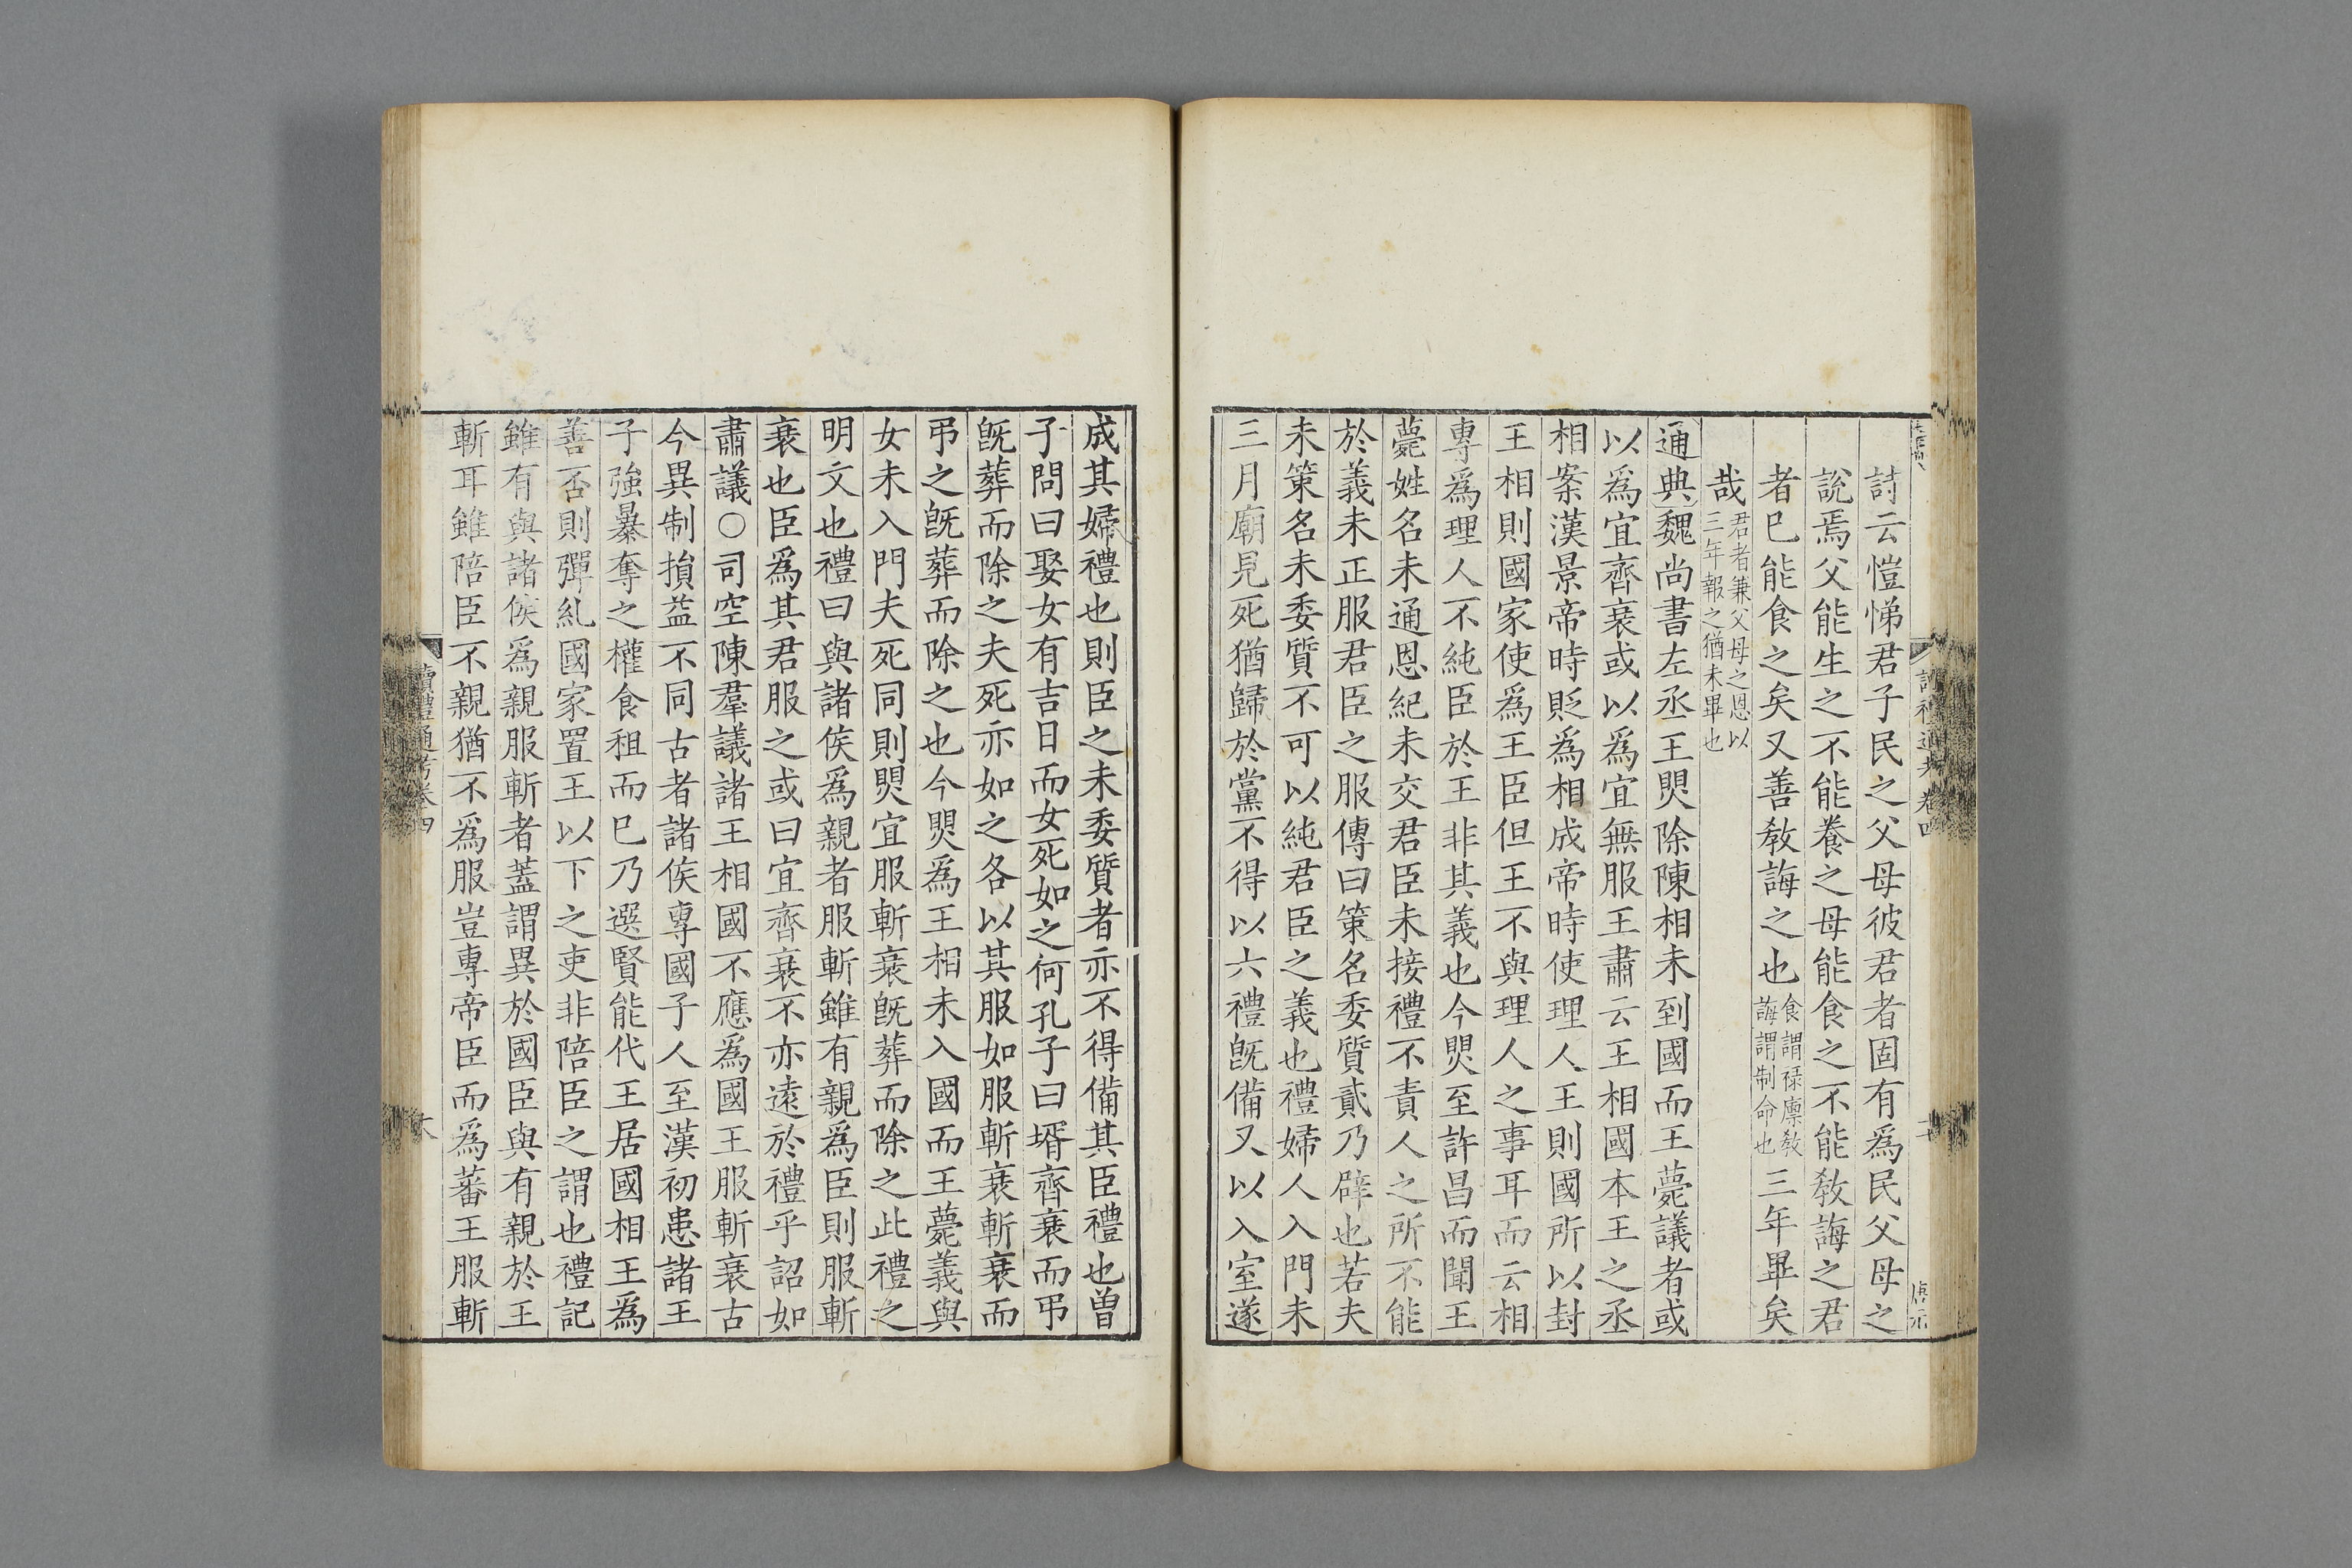 詩云愷悌君子民之父母彼君者固有爲民父母之
說焉父能生之不能養之母能食之不能敎誨之君
者已能食之矣又善敎誨之也食謂祿廪敎誨謂制命也三年畢矣
哉君者兼父母之恩以三年報之猶未畢也
通典魏尚書左丞王煛除陳相未到國而王薨議者或
以爲宜齊衰或以爲宜無服王肅云王相國本王之丞
相案漢景帝時貶爲相成帝時使理人王則國所以封
王相則國家使爲王臣但王不與理人之事耳而云相
專爲理人不純臣於王非其義也今煛至許昌而聞王
薨姓名未通恩紀未交君臣未接禮不責人之所不能
於義未正服君臣之服傳曰策名委質貳乃辟也若夫
未策名未委質不可以純君臣之義也禮婦人入門未
三月廟見死猶歸於黨不得以六禮旣備又以入室遂
成其婦禮也則臣之未委質者亦不得備其臣禮也曾
子問曰娶女有吉日而女死如之何孔子曰壻齊衰而弔
旣葬而除之夫死亦如之各以其服如服斬衰斬衰而
弔之旣葬而除之也今煛爲王相未入國而王薨義與
女未入門夫死同則煛宜服斬衰旣葬而除之此禮之
明文也禮曰與諸侯爲親者服斬雖有親爲臣則服斬
衰也臣爲其君服之或曰宜齊衰不亦遠於禮乎詔如
肅議○司空陳羣議諸王相國不應爲國王服斬衰古
今異制損益不同古者諸侯專國子人至漢初患諸王
子強暴奪之權食租而已乃選賢能代王居國相王爲
善否則彈糺國家置王以下之吏非陪臣之謂也禮記
雖有與諸侯爲親服斬者蓋謂異於國臣與有親於王
斬耳雖陪臣不親猶不爲服豈專帝臣而爲蕃王服斬
讀禮通考卷四